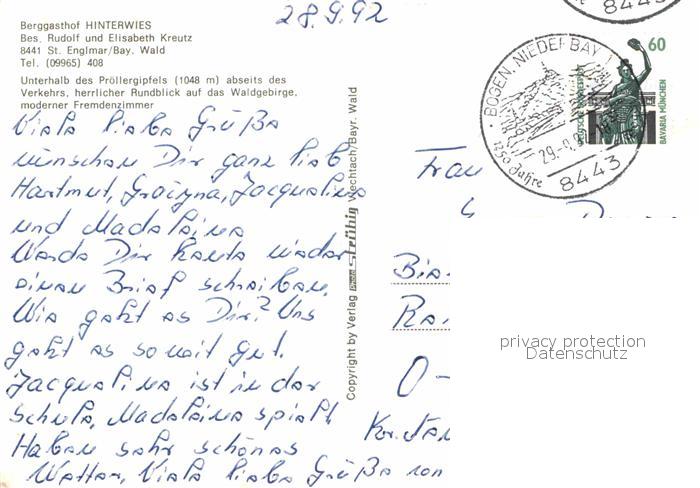 28.9.92
Berggasthof HINTERWIES
Bes. Rudolf und Elisabeth Kreutz
8441 St. Englmar/Bay. Wald
Tel. (09965) 408
Unterhalb des Pröllergipfels (1048 m) abseits des
Verkehrs, herrlicher Rundblick auf das Waldgebirge,
moderner Fremdenzimmer
Viele liebe Grüße
wünschen Dir ganz lieb
Hartmut, Grazyna, Jacqueline
und Madeleine
Werde Dir heute wieder
einen Brief schreiben.
Wie geht es Dir? Uns
geht es soweit gut.
Jacqueline ist in der
Schule, Madeleine spielt.
Haben sehr schönes
Wetter, Viele liebe Grüße von
Copyright by Verlag Photo Strübig Viechtach/Bayr. Wald
8443
BOGEN, NIEDERBAY
1250 Jahre
8443
60
DEUTSCHE BUNDESPOST
BAVARIA MÜNCHEN
Frau
privacy protection
Datenschutz
O-